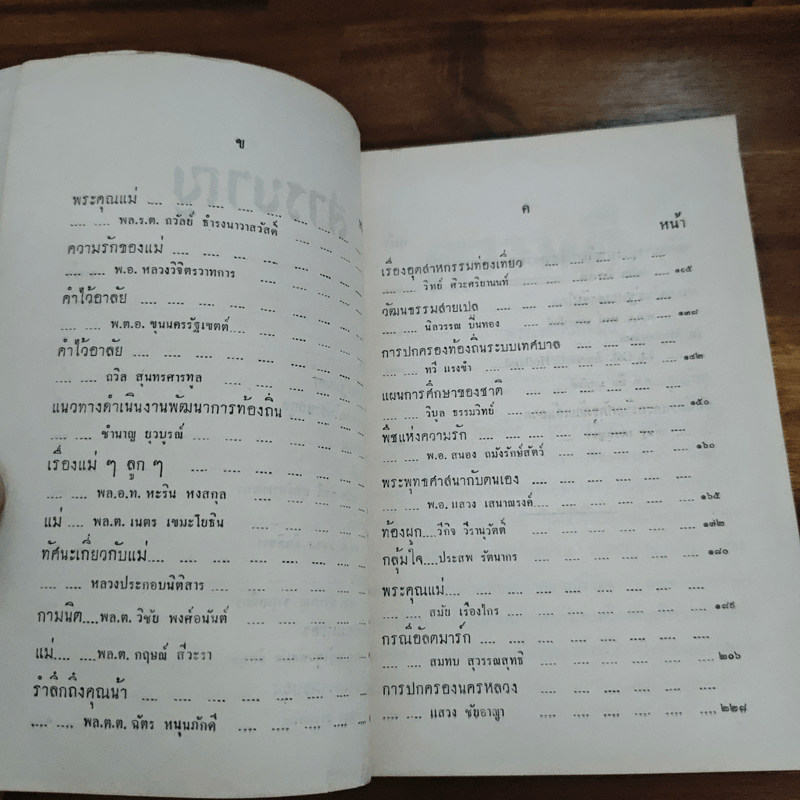 ข
พระคุณแม่ .... .... .... .... .... ....
.... .... พล.ร.ต. ถวัลย์ ธำรงนาวาสวัสดิ์ ....
ความรักของแม่ .... .... .... .... ....
.... .... พ.อ. หลวงวิจิตรวาทการ .... ....
คำไว้อาลัย .... .... .... .... ....
.... .... พ.ต.อ. ขุนนครรัฐเขตต์ .... ....
คำไว้อาลัย .... .... .... .... ....
.... .... ถวิล สุนทรศารทูล .... ....
แนวทางดำเนินงานพัฒนาการท้องถิ่น
.... .... ชำนาญ ยุวบูรณ์ .... .... ....
เรื่องแม่ ๆ ลูก ๆ .... .... .... ....
.... .... พล.อ.ท. หะริน หงสกุล .... ....
แม่ .... พล.ต. เนตร เขมะโยธิน .... ....
ทัศนะเกี่ยวกับแม่ .... .... .... ....
.... .... หลวงประกอบนิติสาร .... ....
กามนิต .... พล.ต. วิชัย พงศ์อนันต์ .... ....
แม่ .... .... พล.ต. กฤษณ์ สีวะรา .... ....
รำลึกถึงคุณน้า .... .... .... ....
.... .... พล.ต.ต. ฉัตร หนุนภักดี .... ....
ค
หน้า
เรื่องอุตสาหกรรมท่องเที่ยว .... .... ....
.... .... วิทย์ ศิวะศริยานนท์ .... ....
วัฒนธรรมสายเปล .... .... .... ....
.... .... นิลวรรณ ปิ่นทอง .... .... ๑๓๘
การปกครองท้องถิ่นระบบเทศบาล
.... .... ทวี แรงขำ .... .... .... ๑๔๒
แผนการศึกษาของชาติ .... .... ....
.... .... วิบูล ธรรมวิทย์ .... .... ๑๕๐
พืชแห่งความรัก .... .... .... ....
.... .... พ.อ. สนอง ถมังรักษ์สัตว์ .... ๑๖๐
พระพุทธศาสนากับตนเอง .... .... ....
.... .... พ.อ. แสวง เสนาณรงค์ .... ๑๖๕
ท้องผูก .... วีกิจ วีรานุวัตติ์ .... .... ๑๗๒
กลุ้มใจ .... ประสพ รัตนากร .... .... ๑๘๐
พระคุณแม่ .... .... .... .... ....
.... .... สมัย เรืองไกร .... .... ๑๘๙
กรณีอัลตมาร์ก .... .... .... ....
.... .... สมทบ สุวรรณสุทธิ .... .... ๒๐๖
การปกครองนครหลวง .... .... ....
.... .... แสวง ชัยอาญา .... .... ๒๒๘